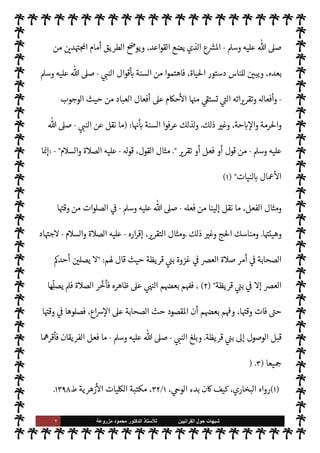 صلى الله عليه وسلم - المشرع الذي يضع القواعد، ويوضح الطريق أمام المجتهدين من
بعده، ويبين للناس دستور الحياة، فاهتموا من السنة بأقوال النبي - صلى الله عليه وسلم
- وأفعاله وتقريراته التي تستقي منها الأحكام على أفعال العباد من حيث الوجوب
والحرمة والإباحة، وغير ذلك. ولذلك عرفوا السنة بأنها: (ما نقل عن النبي - صلى الله
عليه وسلم - من قول أو فعل أو تقرير ". مثال القول، قوله - عليه الصلاة والسلام" - :إنما
الأعمال بالنيات" (١)
ومثال الفعل، ما نقل إلينا من فعله - صلى الله عليه وسلم - في الصلوات من وقتها
وهيئتها. ومناسك الحج وغير ذلك .ومثال التقرير، إقراره - عليه الصلاة والسلام - لاجتهاد
الصحابة في أمر صلاة العصر في غزوة بني قريظة حيث قال لهم: "لا يصلين أحدكم
العصر إلا في بني قريظة" (٢) ، ففهم بعضهم النهي على ظاهره فأخر الصلاة فلم يصلها
حتى فات وقتها، وفهم بعضهم أن المقصود حث الصحابة على الإسراع، فصلوها في وقتها
قبل الوصول إلى بني قريظة. وبلغ النبي - صلى الله عليه وسلم - ما فعل الفريقان فأقرهما
جميعا (٣. (
(١)رواه البخاري، كيف كان بدء الوحي، ٣٢/١، مكتبة الكليات الأزهرية ط١٣٩٨.
شبهات حول القرآنيين للأستاذ الدكتور محمود مزروعة ٢